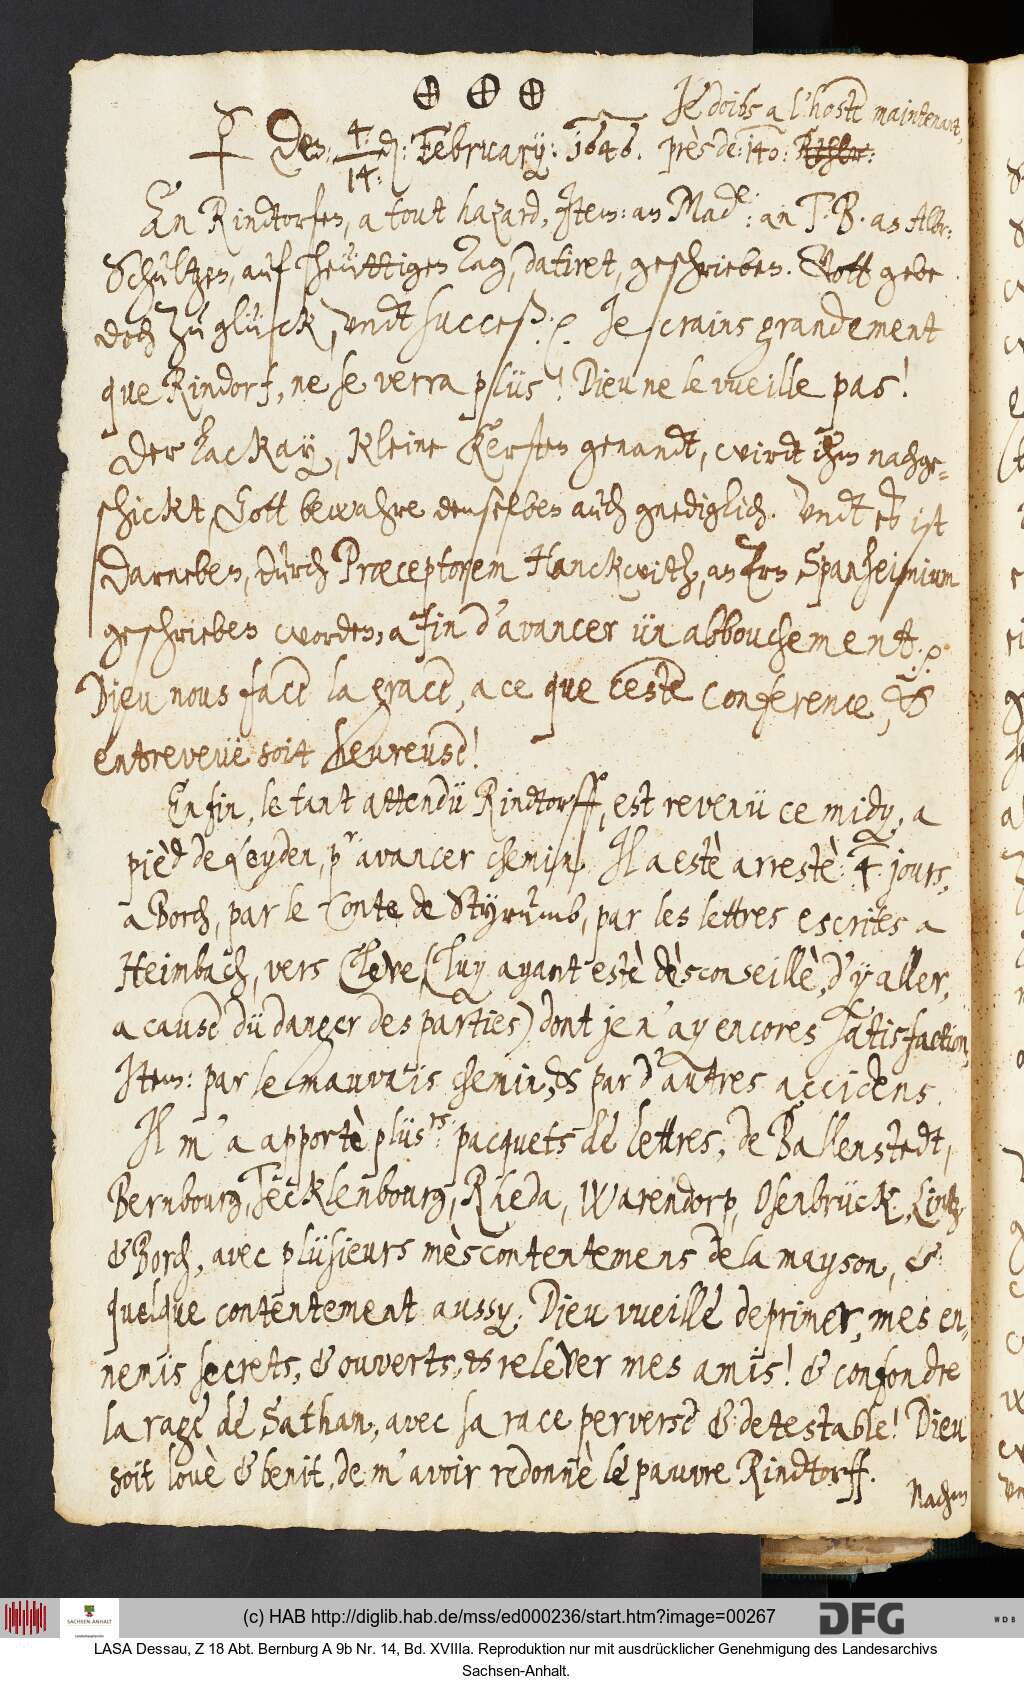 ⊕ ⊕ ⊕ Je doibs a l'hoste maintenant,
Den: 4: / 14: d: February: 1646. près de: 140: Rthlr:
An Rindtorfen, a tout hazard, Item: an Mad.e: an T. B. an Albr:
Schultzen, auf heüttigen Tag, datiret, geschrieben. Gott gebe
doch zu glück, vndt succeß. Je crains grandement
que Rindorf, ne se verra plüs! Dieu ne le vueille pas!
Der Lackay, kleine Kersten genandt, wirdt ihm nachge-
schickt, Gott bewahre denselben auch gnediglich. Vndt es ist
darneben, durch Præceptorem Hanckwith, an Hrn Spanheimium
geschrieben worden, afin d'avancer ün abbouchement.
Dieu nous face la grace, a ce que ceste conference, &
entreveuë soit heureuse!
Enfin, le tant attendü Rindtorff, est revenü ce midy, a
pièd de Leyden, pr avancer chemin. Il a estè arrestè 4 jours,
a Borch, par le Conte de Styrumb, par les lettres escrites a
Heimbach, vers Cleve, (luy ayant estè dèsconseillè, d'y aller,
a cause dü danger des parties) dont je n'ay encores satisfaction,
Item: par le mauvais chemin, & par d'autres accidens.
Il m'a apportè plüs.rs pacquets de lettres, de Ballenstedt,
Bernbourg, Tecklenbourg, Rheda, Warendorp, Osenbrück,
& Borch, avec plüsieurs mèscontentemens de la mayson, &
quelque contentement aussy. Dieu vueille deprimer, mes en-
nemis secrets, & ouverts, & relever mes amis! & confondre
la rage de Sathan, avec sa race perverse & detestable! Dieu
soit louè & benit, de m'avoir redonnè le pauvre Rindtorff.
Nachm
(c) HAB http://diglib.hab.de/mss/ed000236/start.htm?image=00267
SACHSEN-ANHALT
DFG
WDB
LASA Dessau, Z 18 Abt. Bernburg A 9b Nr. 14, Bd. XVIIIa. Reproduktion nur mit ausdrücklicher Genehmigung des Landesarchivs
Sachsen-Anhalt.